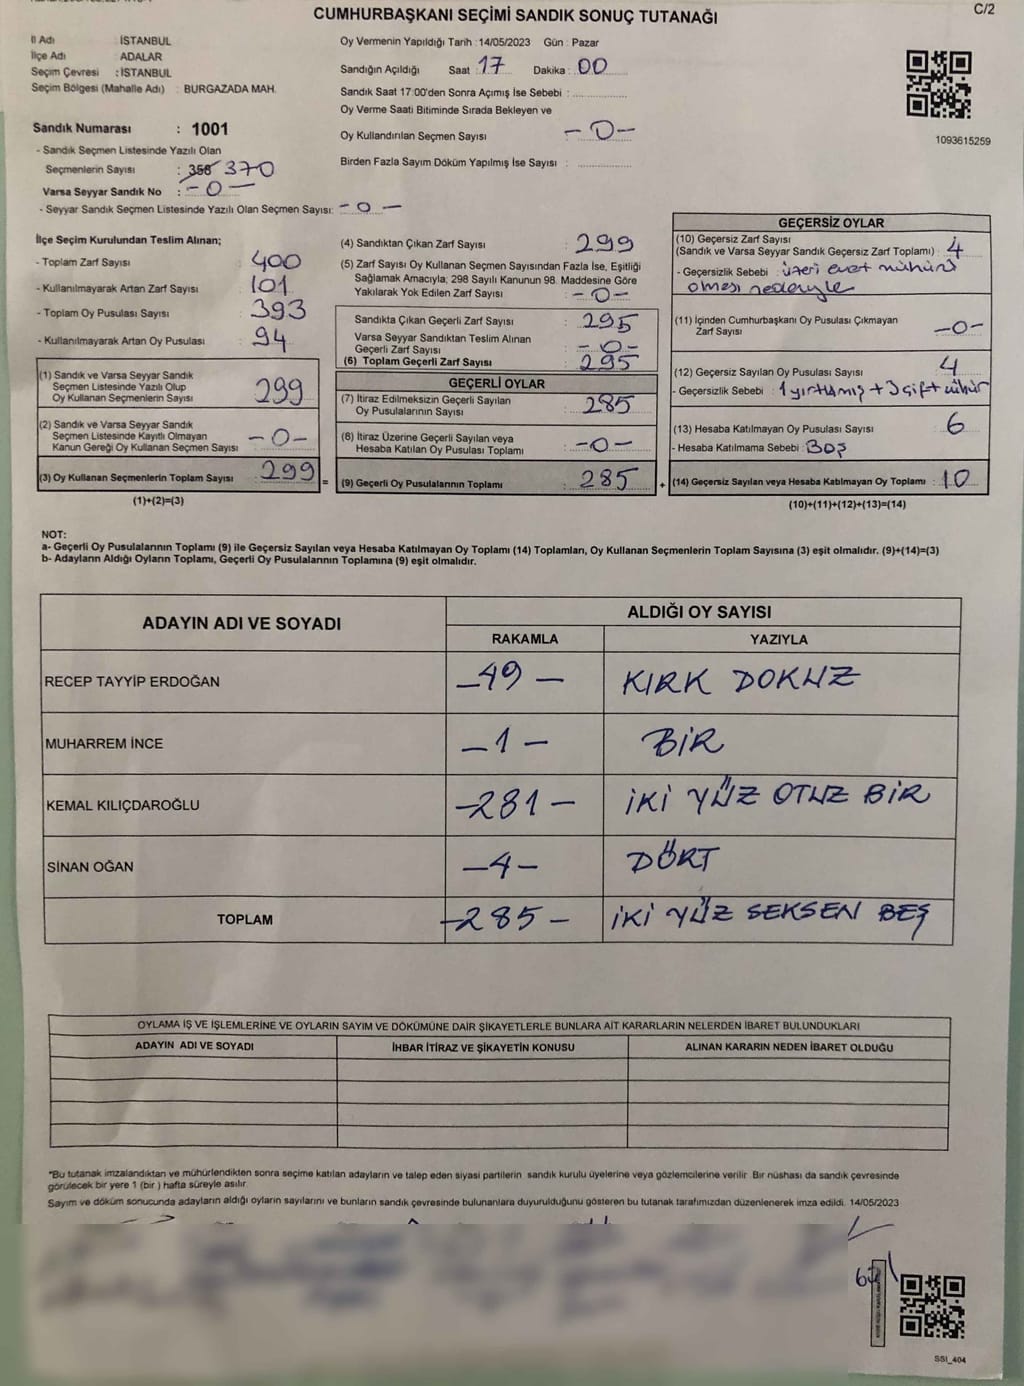 C/2
CUMHURBAŞKANI SEÇİMİ SANDIK SONUÇ TUTANAĞI
İl Adı : İSTANBUL
İlçe Adı : ADALAR
Seçim Çevresi : İSTANBUL
Seçim Bölgesi (Mahalle Adı) : BURGAZADA MAH.
Sandık Numarası : 1001
- Sandık Seçmen Listesinde Yazılı Olan
Seçmenlerin Sayısı : 356 370
Varsa Seyyar Sandık No : -0-
- Seyyar Sandık Seçmen Listesinde Yazılı Olan Seçmen Sayısı: -0-
Oy Vermenin Yapıldığı Tarih : 14/05/2023 Gün : Pazar
Sandığın Açıldığı Saat : 17 Dakika : 00
Sandık Saat 17:00'den Sonra Açımış İse Sebebi :
Oy Verme Saati Bitiminde Sırada Bekleyen ve
Oy Kullandırılan Seçmen Sayısı -0-
Birden Fazla Sayım Döküm Yapılmış İse Sayısı :
1093615259
İlçe Seçim Kurulundan Teslim Alınan;
- Toplam Zarf Sayısı : 400
- Kullanılmayarak Artan Zarf Sayısı : 101
- Toplam Oy Pusulası Sayısı : 393
- Kullanılmayarak Artan Oy Pusulası : 94
(1) Sandık ve Varsa Seyyar Sandık
Seçmen Listesinde Yazılı Olup
Oy Kullanan Seçmenlerin Sayısı : 299
(2) Sandık ve Varsa Seyyar Sandık
Seçmen Listesinde Kayıtlı Olmayan
Kanun Gereği Oy Kullanan Seçmen Sayısı : -0-
(3) Oy Kullanan Seçmenlerin Toplam Sayısı : 299
(1)+(2)=(3)
(4) Sandıktan Çıkan Zarf Sayısı : 299
(5) Zarf Sayısı Oy Kullanan Seçmen Sayısından Fazla İse, Eşitliği
Sağlamak Amacıyla; 298 Sayılı Kanunun 98. Maddesine Göre
Yakılarak Yok Edilen Zarf Sayısı : -0-
Sandıkta Çıkan Geçerli Zarf Sayısı : 295
Varsa Seyyar Sandıktan Teslim Alınan
Geçerli Zarf Sayısı : -0-
(6) Toplam Geçerli Zarf Sayısı : 295
GEÇERLİ OYLAR
(7) İtiraz Edilmeksizin Geçerli Sayılan
Oy Pusulalarının Sayısı : 285
(8) İtiraz Üzerine Geçerli Sayılan veya
Hesaba Katılan Oy Pusulası Toplamı : -0-
= (9) Geçerli Oy Pusulalarının Toplamı : 285
GEÇERSİZ OYLAR
(10) Geçersiz Zarf Sayısı
(Sandık ve Varsa Seyyar Sandık Geçersiz Zarf Toplamı) : 4
- Geçersizlik Sebebi : üzeri evet mühürü
olması nedeniyle
(11) İçinden Cumhurbaşkanı Oy Pusulası Çıkmayan
Zarf Sayısı : -0-
(12) Geçersiz Sayılan Oy Pusulası Sayısı : 4
- Geçersizlik Sebebi : 1 yırtılmış + 3 çift mühür
(13) Hesaba Katılmayan Oy Pusulası Sayısı : 6
- Hesaba Katılmama Sebebi : Boş
+ (14) Geçersiz Sayılan veya Hesaba Katılmayan Oy Toplamı : 10
(10)+(11)+(12)+(13)=(14)
NOT:
a- Geçerli Oy Pusulalarının Toplamı (9) ile Geçersiz Sayılan veya Hesaba Katılmayan Oy Toplamı (14) Toplamları, Oy Kullanan Seçmenlerin Toplam Sayısına (3) eşit olmalıdır. (9)+(14)=(3)
b- Adayların Aldığı Oyların Toplamı, Geçerli Oy Pusulalarının Toplamına (9) eşit olmalıdır.
ADAYIN ADI VE SOYADI
ALDIĞI OY SAYISI
RAKAMLA YAZIYLA
RECEP TAYYİP ERDOĞAN -49- KIRK DOKUZ
MUHARREM İNCE -1- BİR
KEMAL KILIÇDAROĞLU -281- İKİ YÜZ OTUZ BİR
SİNAN OĞAN -4- DÖRT
TOPLAM -285- İKİ YÜZ SEKSEN BEŞ
OYLAMA İŞ VE İŞLEMLERİNE VE OYLARIN SAYIM VE DÖKÜMÜNE DAİR ŞİKAYETLERLE BUNLARA AİT KARARLARIN NELERDEN İBARET BULUNDUKLARI
ADAYIN ADI VE SOYADI İHBAR İTİRAZ VE ŞİKAYETİN KONUSU ALINAN KARARIN NEDEN İBARET OLDUĞU
*Bu tutanak imzalandıktan ve mühürlendikten sonra seçime katılan adayların ve talep eden siyasi partilerin sandık kurulu üyelerine veya gözlemcilerine verilir. Bir nüshası da sandık çevresinde
görülecek bir yere 1 (bir) hafta süreyle asılır.
Sayım ve döküm sonucunda adayların aldığı oyların sayılarını ve bunların sandık çevresinde bulunanlara duyurulduğunu gösteren bu tutanak tarafımızdan düzenlenerek imza edildi. 14/05/2023
SSI_404